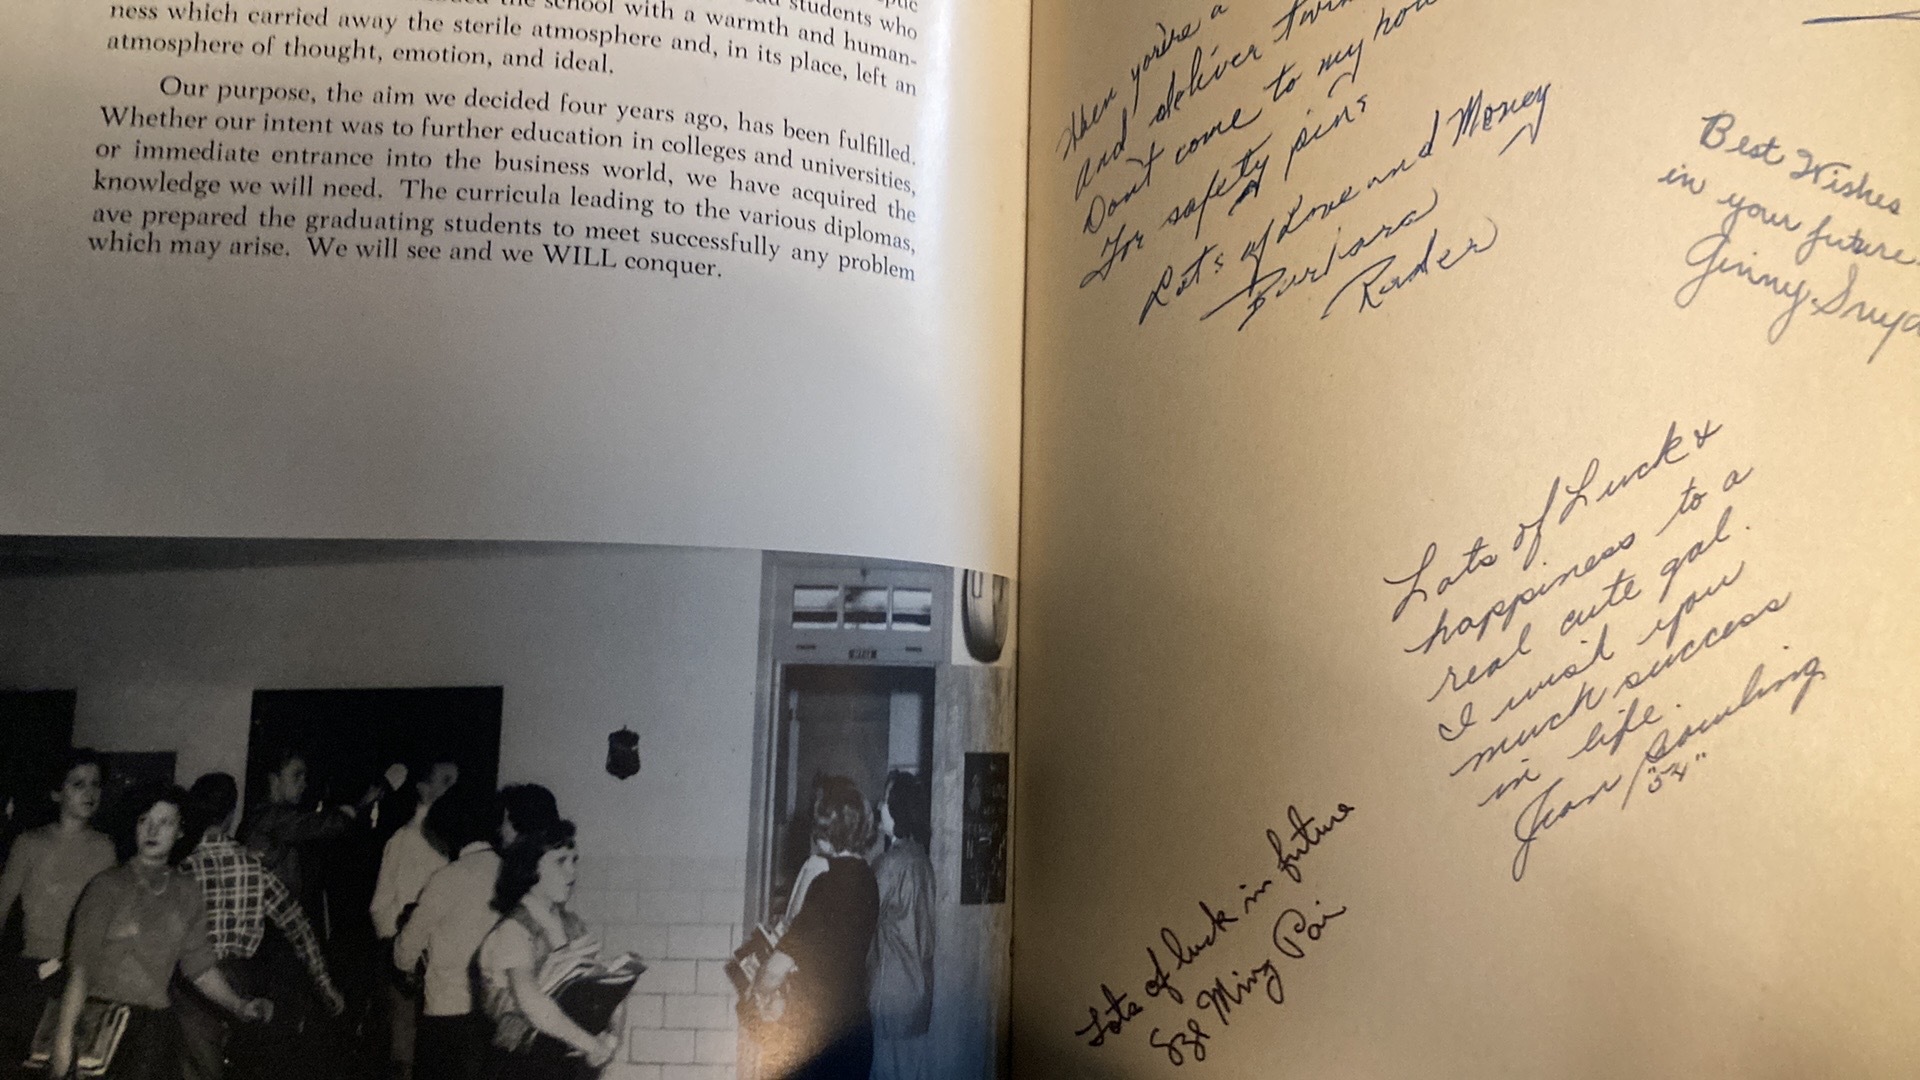 students who
the school with a warmth and human-
ness which carried away the sterile atmosphere and, in its place, left an
atmosphere of thought, emotion, and ideal.
Our purpose, the aim we decided four years ago, has been fulfilled.
Whether our intent was to further education in colleges and universities,
or immediate entrance into the business world, we have acquired the
knowledge we will need. The curricula leading to the various diplomas,
ave prepared the graduating students to meet successfully any problem
which may arise. We will see and we WILL conquer.
When you're a
and deliver
Don't come to my
For safety pins
Lot's of Love and Money
Barbara
Rader
Best Wishes
in your future
Ginny
Lots of Luck &
happiness to a
real cute gal.
I wish you
much success
in life.
Jean
"54"
Lots of luck in future
Sze Ming Pai